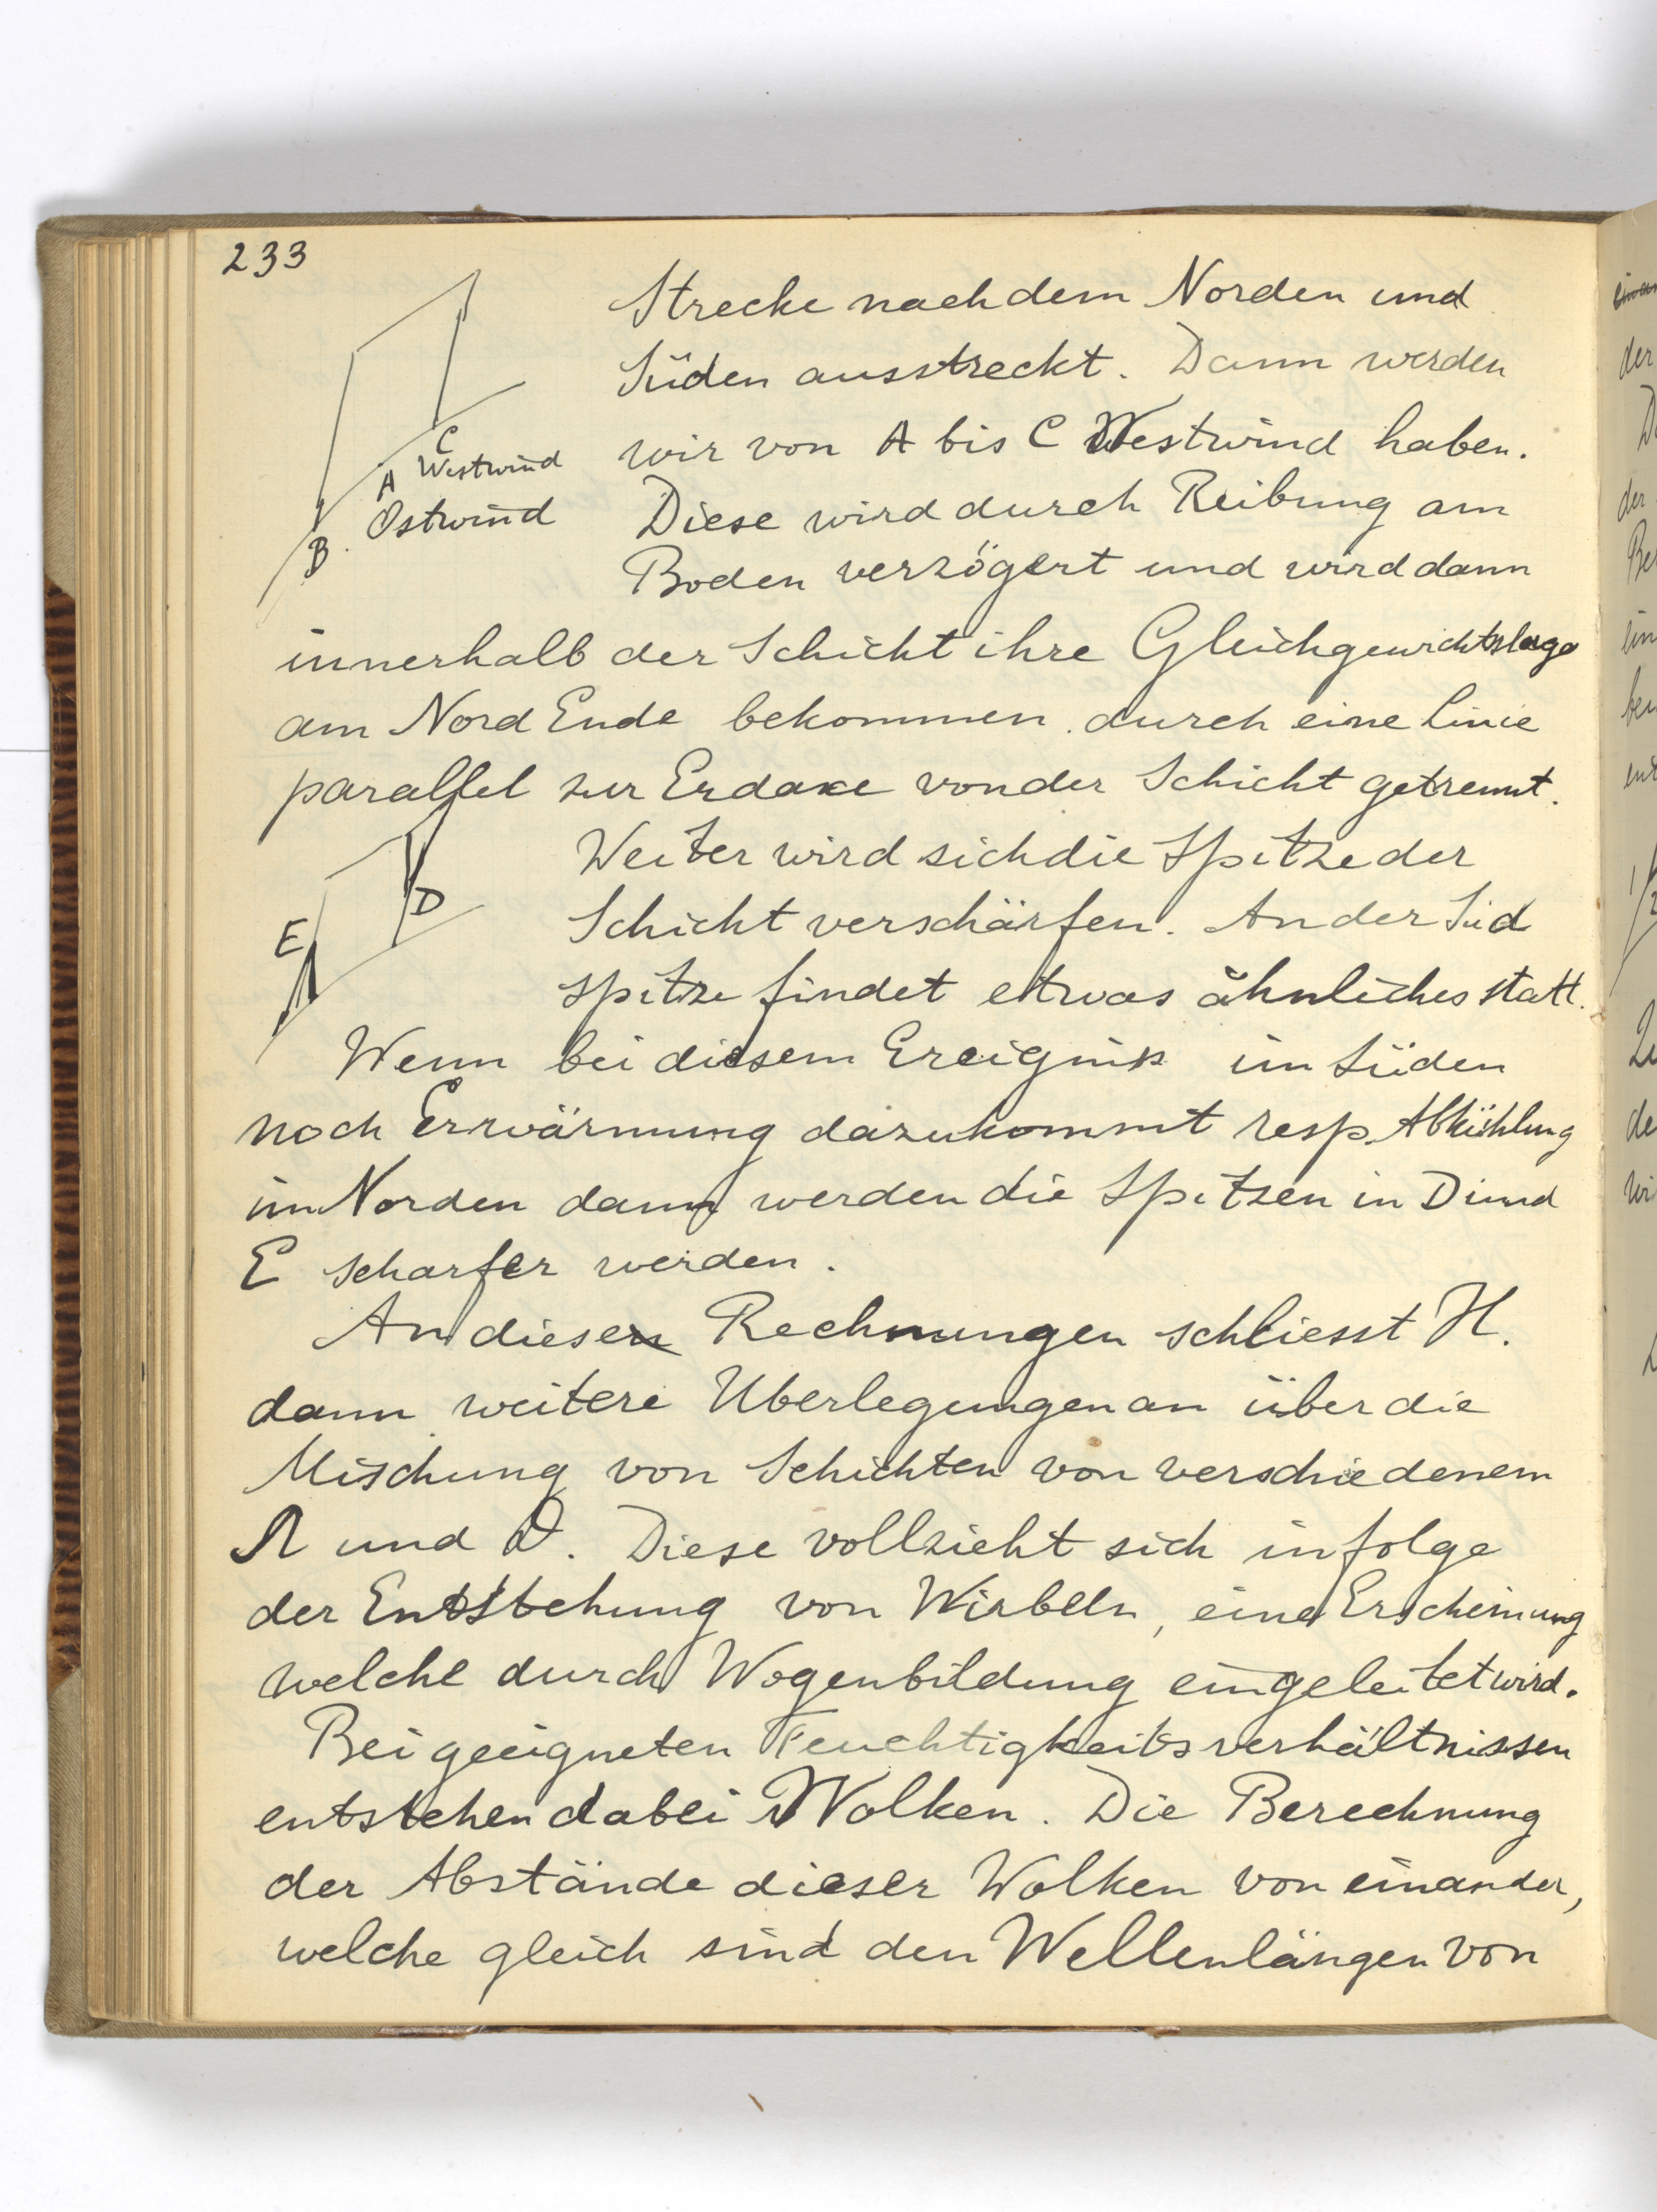 233
Strecke nach dem Norden und
Süden ausstreckt. Dann werden
wir von A bis C Westwind haben.
C
A Westwind
Ostwind
B
Diese wird durch Reibung am
Boden verzögert und wird dann
innerhalb der Schicht ihre Gleichgewichtslage
am Nord Ende bekommen durch eine Linie
parallel zur Erdaxe von der Schicht getrennt.
Weiter wird sich die Spitze der
D
E
Schicht verschärfen. An der Süd
spitze findet etwas ähnliches statt.
Wenn bei diesem Ereigniss im Süden
noch Erwärmung dazukommt resp. Abkühlung
im Norden dann werden die Spitzen in D und
E scharfer werden.
An diesen Rechnungen schliesst H.
dann weitere Uberlegungen an über die
Mischung von Schichten von verschiedenem
Ω und ϑ. Diese vollzieht sich infolge
der Entstehung von Wirbeln, eine Erscheinung
welche durch Wogenbildung eingeleitet wird.
Bei geeigneten Feuchtigkeitsverhältnissen
entstehen dabei Wolken. Die Berechnung
der Abstände dieser Wolken von einander,
welche gleich sind den Wellenlängen von